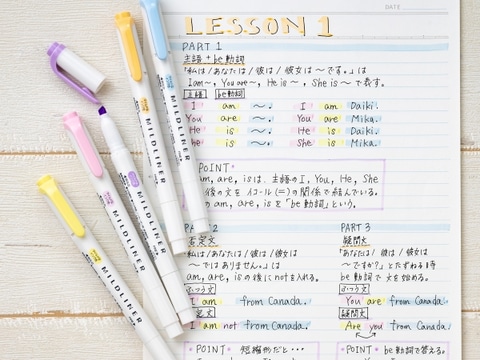 DATE
LESSON 1
PART 1
主語 + be動詞
「私は/あなたは/彼は/彼女は〜です。」は
I am〜, You are〜, He is〜, She is〜 で表す。
主語 be動詞
I am 〜. I am Daiki.
You are 〜. You are Mika.
He is 〜. He is Daiki.
She is 〜. She is Mika.
POINT
am, are, is は、主語の I, You, He, She
後の文を イコール(=)の関係で結んでいる。
am, are, is を「be動詞」という。
2
否定文
「私は/あなたは/彼は/彼女は
〜ではありません。」は
am, are, is の後に not を入れる。
ふつう文
I am from Canada.
定文
I am not from Canada.
POINT 短縮形だと…
PART 3
疑問文
「あなたは/彼は/彼女は
〜ですか?」とたずねる時
be動詞で文を始める。
ふつう文
You are from Canada.
疑問文
Are you from Canada.
POINT be動詞で答える。
MILDLINER
MILDLINER
MILDLINER
MILDLINER
MILDLINER